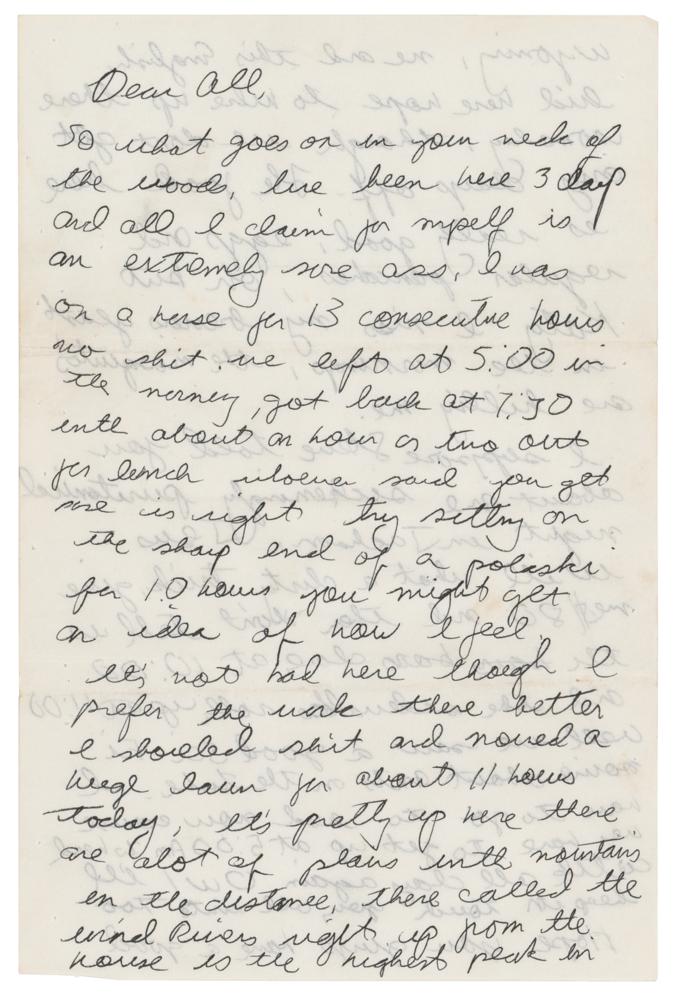 Dear All,
So what goes on in your neck of
the woods, Ive been here 3 days
and all I claim for myself is
an extremely sore ass, I was
on a horse for 13 consecutive hours
no shit. we left at 5:00 in
the morning, got back at 7:30
with about an hour or two out
for lunch whoever said you get
sore is right try sitting on
the sharp end of a polaski
for 10 hours you might get
an idea of how I feel.
It's not bad here though I
prefer the work there better
I shoveled shit and mowed a
huge lawn for about 11 hours
today, It's pretty up here there
are alot of plains with mountains
in the distance, there called the
wind Rivers right up from the
house is the highest peak in